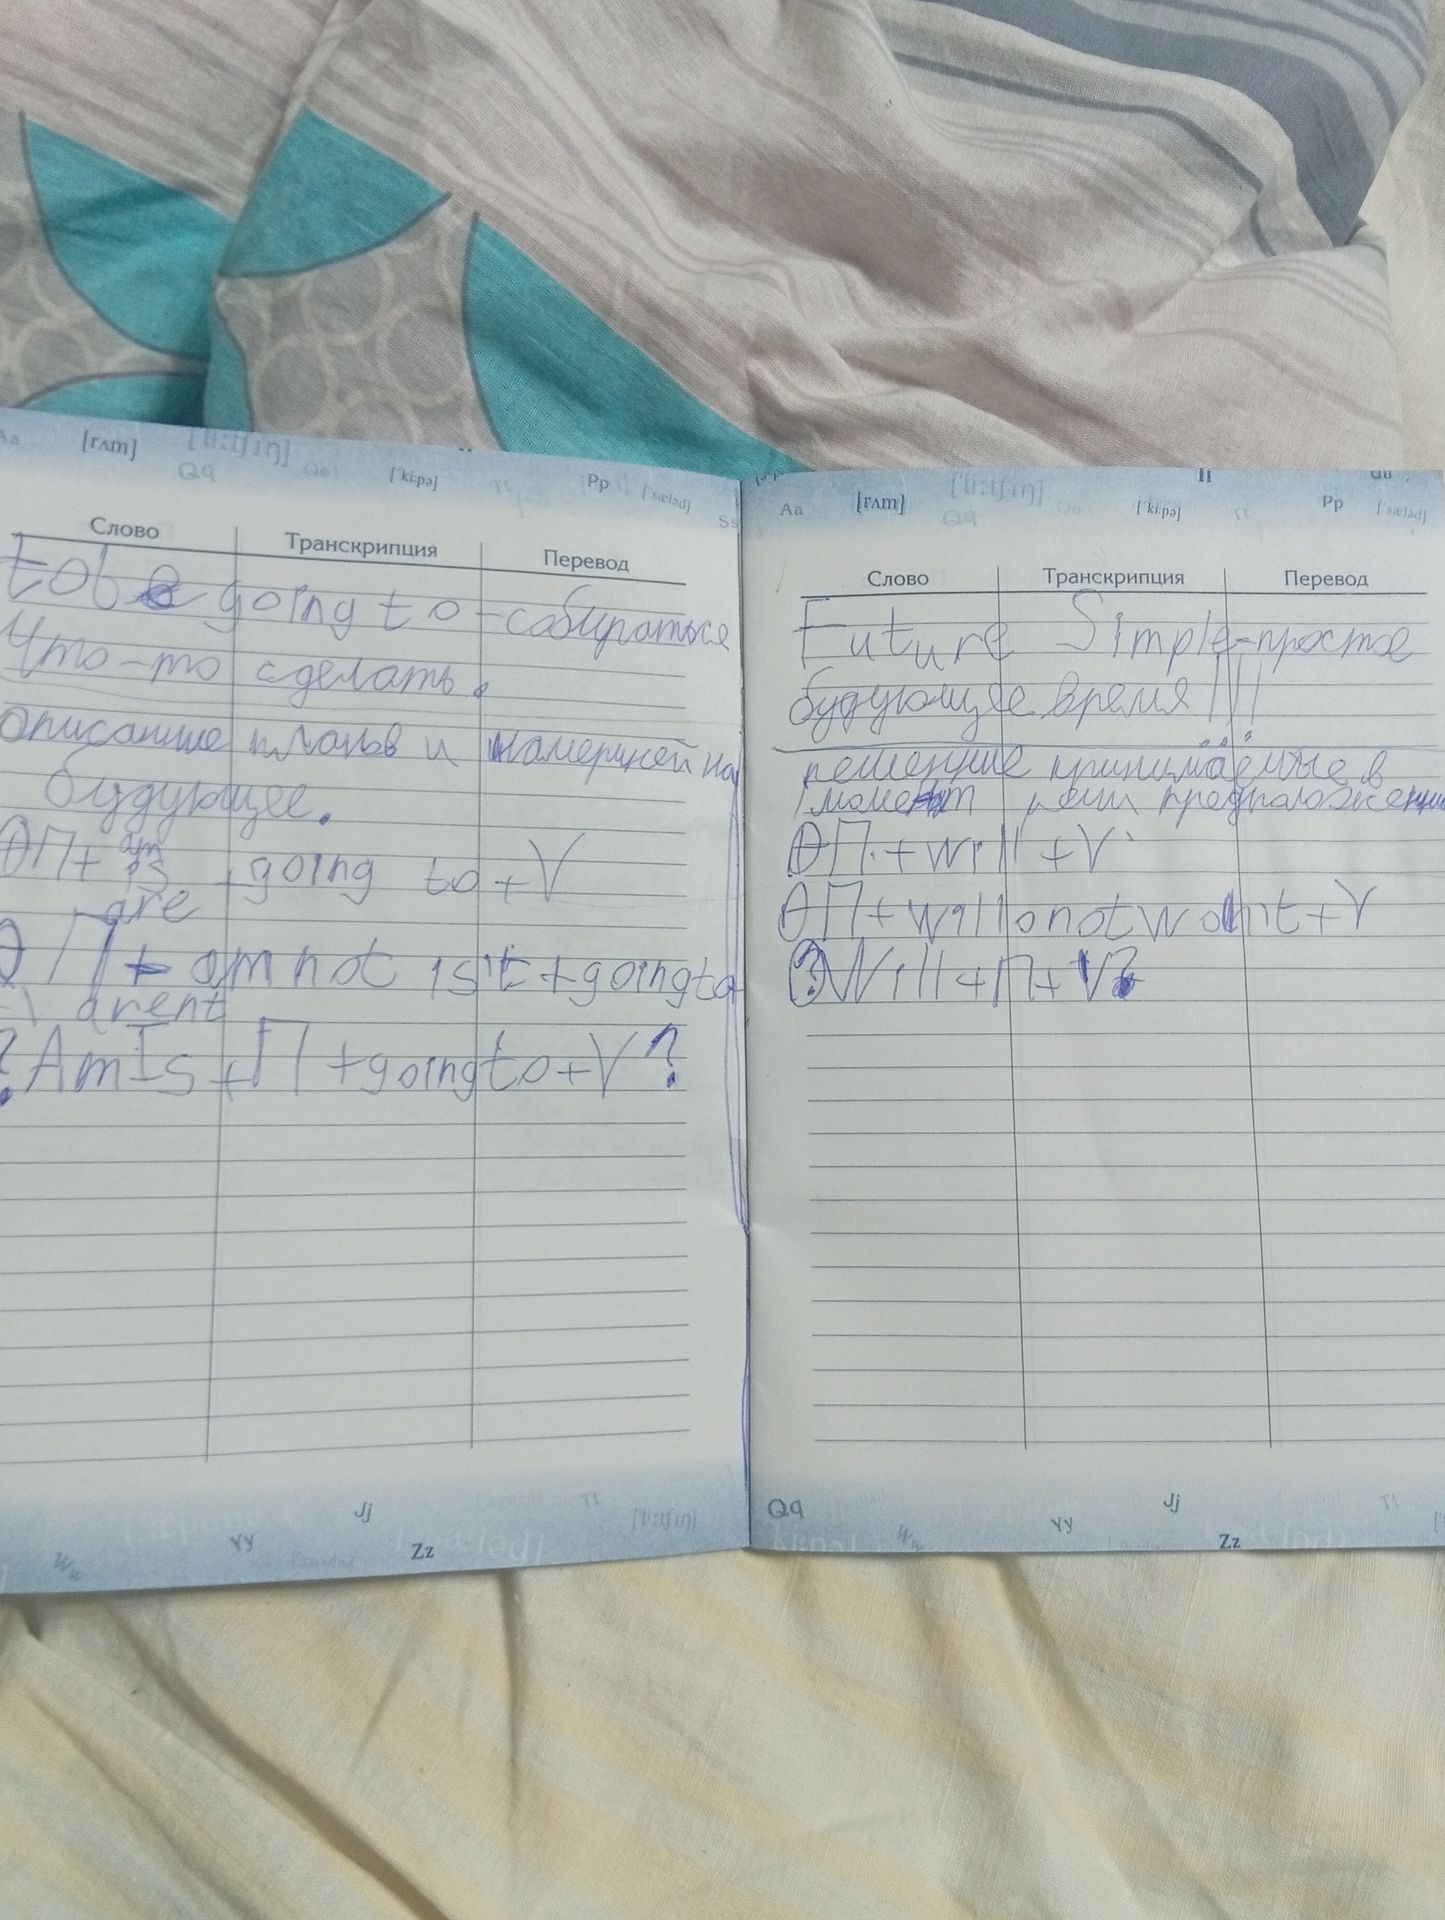 Aa [rʌm] Qq ['ki:pə] Pp ['sæləd] Ss
Слово Транскрипция Перевод
to be going to - собираться
что-то сделать.
описание планов и намерений на
будующее.
П+ am
is + going to + V
are
П + am not isn't + going to
arent
? Am Is + П + going to + V ?
Jj
Yy Zz
Ww
Aa [rʌm] Qq ['ki:pə] Tt Pp ['sæləd]
Слово Транскрипция Перевод
Future Simple - простое
будующее время !!!
решение принимаемые в
момент речи предположение
П. + will + V
П + will not won't + V
? Will + П + V?
Qq Jj Tt
Yy Zz
Ww